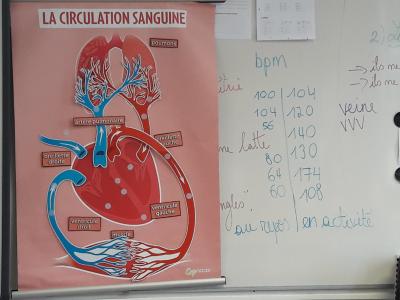 LA CIRCULATION SANGUINE
poumons
artère pulmonaire
oreillette droite
oreillette gauche
ventricule droit
ventricule gauche
muscle
bpm
100 | 104
104 | 120
56 | 140
80 | 130
64 | 174
60 | 108
au repos | en activité
2)
→ ils me
→ ils me
veine
VVV